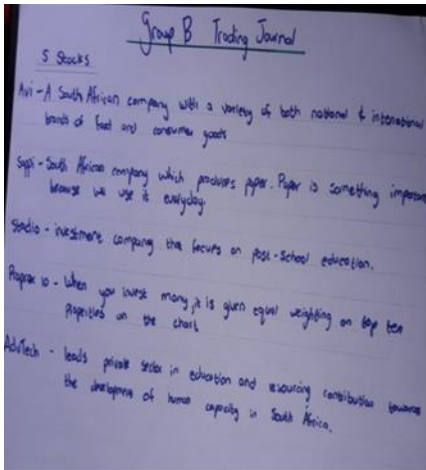 Group B Trading Journal
5 Stocks
Avi - A South African company with a variety of both national & international
brands of food and consumer goods
Sappi - South African company which produces paper. Paper is something important
because we use it everyday.
Stadio - investment company that focuses on post-school education.
Proprax 10 - When you invest money, it is given equal weighting on top ten
Properties on the chart
AdvTech - leads private sector in education and resourcing contribution towards
the development of human capacity in South Africa.